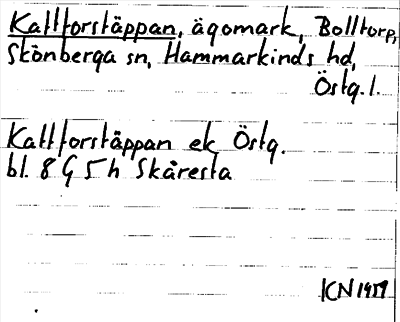 Kattforstäppan, ägomark, Bolltorp,
Skönberga sn, Hammarkinds hd,
Östg. l.
Kattforstäppan ek Östg.
bl. 8 G 5 h Skåresta
KN 1959